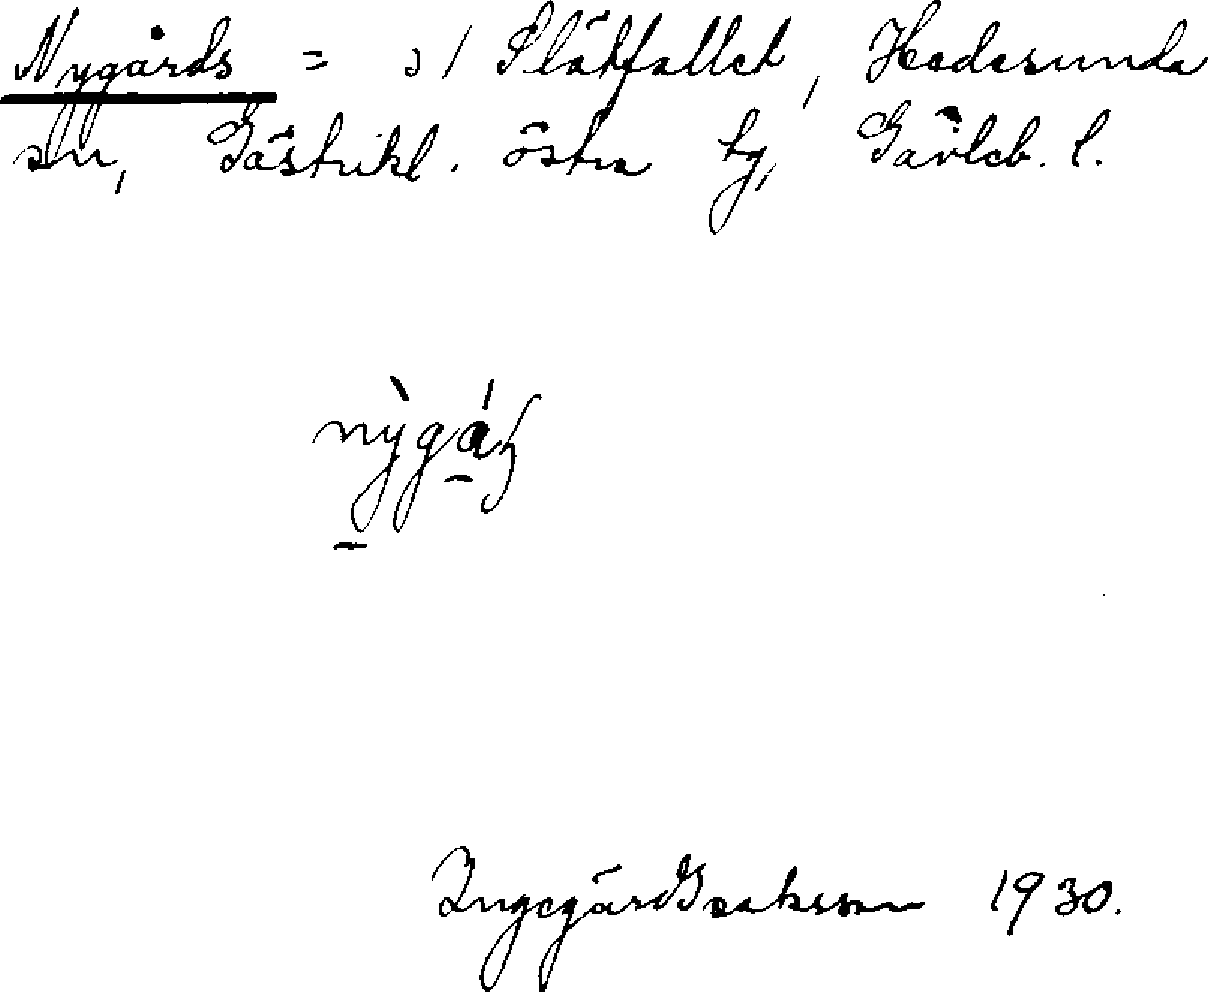 Nygårds = a/ Slåttfallet, Hedesunda
sn, Gästrikl. östra tg, Gävleb. l.
Ingegärd Isaksson 1930.